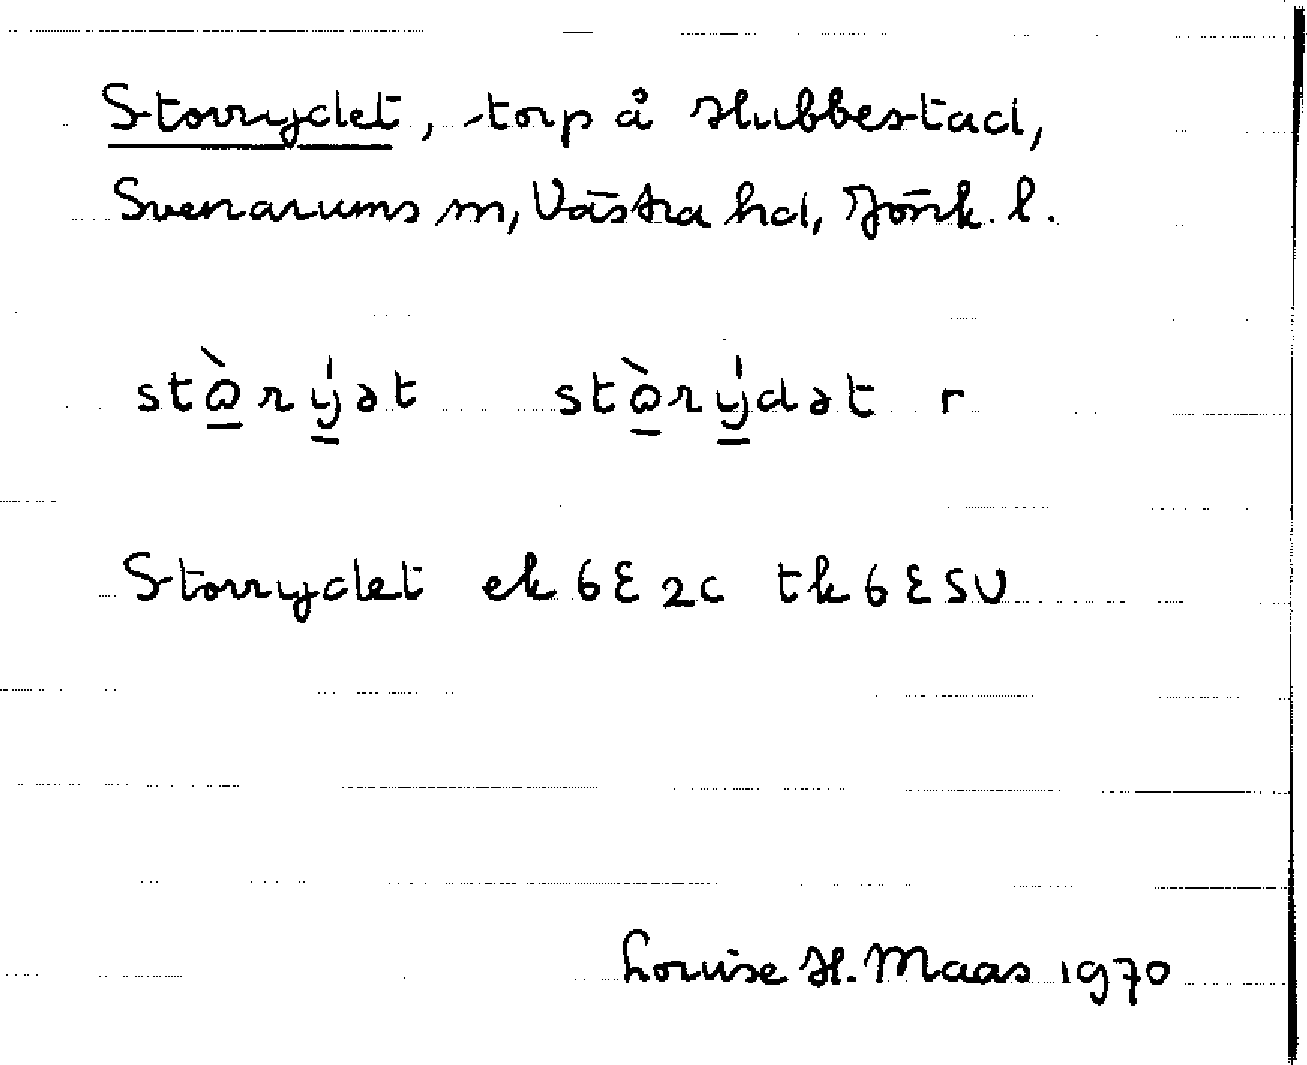 Storrydet, torp å Hubbestad,
Svenarums sn, Västra hd, Jönk. l.
stò̱rẏ̱ət stò̱rẏ̱dət r
Storrydet ek 6E2c tk 6ESV
Louise H. Maas 1970